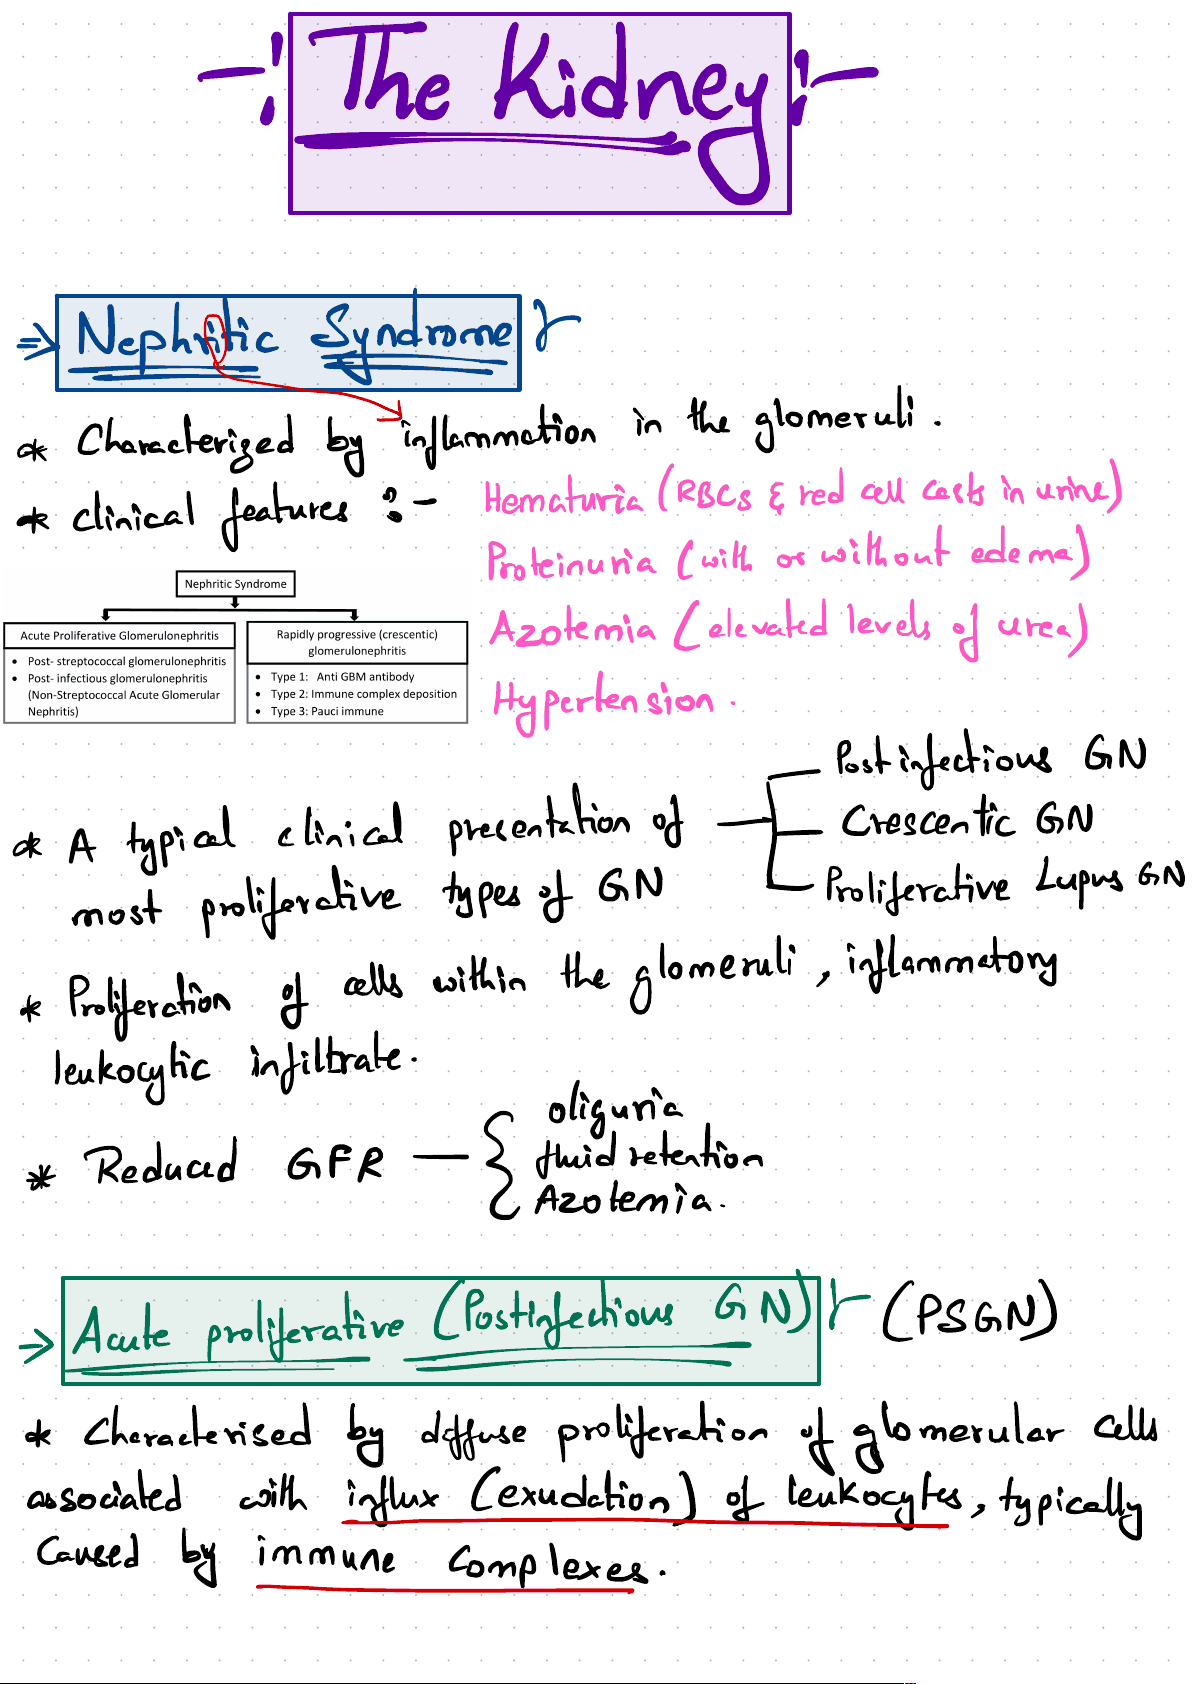 The Kidney
⇒ Nephritic Syndrome
* Characterized by inflammation in the glomeruli.
* Clinical features :-
Hematuria (RBCs & red cell casts in urine)
Proteinuria (with or without edema)
Azotemia (elevated levels of urea)
Hypertension.
Nephritic Syndrome
Acute Proliferative Glomerulonephritis
• Post- streptococcal glomerulonephritis
• Post- infectious glomerulonephritis
(Non-Streptococcal Acute Glomerular
Nephritis)
Rapidly progressive (crescentic)
glomerulonephritis
• Type 1: Anti GBM antibody
• Type 2: Immune complex deposition
• Type 3: Pauci immune
* A typical clinical presentation of
most proliferative types of GN
Postinfectious GN
Crescentic GN
Proliferative Lupus GN
* Proliferation of cells within the glomeruli, inflammatory
leukocytic infiltrate.
* Reduced GFR —
oliguria
fluid retention
Azotemia.
→ Acute proliferative (Postinfectious GN) (PSGN)
* Characterised by diffuse proliferation of glomerular cells
associated with influx (exudation) of leukocytes, typically
caused by immune complexes.